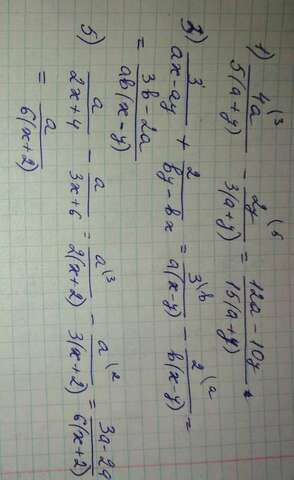 1) 4a\3/5(a+y) - 2y\6/3(a+y) = 12a-10y/15(a+y)
3) 3/ax-ay + 2/by-bx = 3\b/a(x-y) - 2\a/b(x-y) =
= 3b-2a/ab(x-y)
5) a/2x+4 - a/3x+6 = a\3/2(x+2) - a\2/3(x+2) = 3a-2a/6(x+2)
= a/6(x+2)